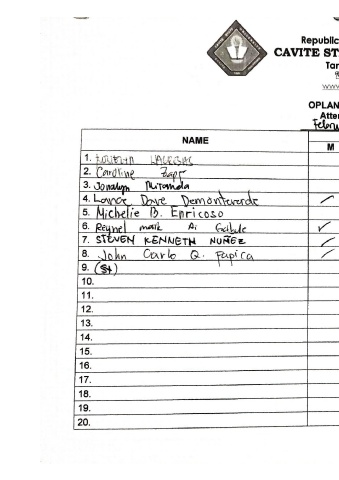 Republic
CAVITE ST
Tan
www
OPLAN
Atten
Februa
NAME
M
1.
2. Caroline
3. Jonalyn Miranda
4. Lance Dave Demonteverde
5. Michelle B. Enricoso
6. Reynel mark Ai
7. STEVEN KENNETH NUÑEZ
8. John Carlo Q. Papica
9.
10.
11.
12.
13.
14.
15.
16.
17.
18.
19.
20.